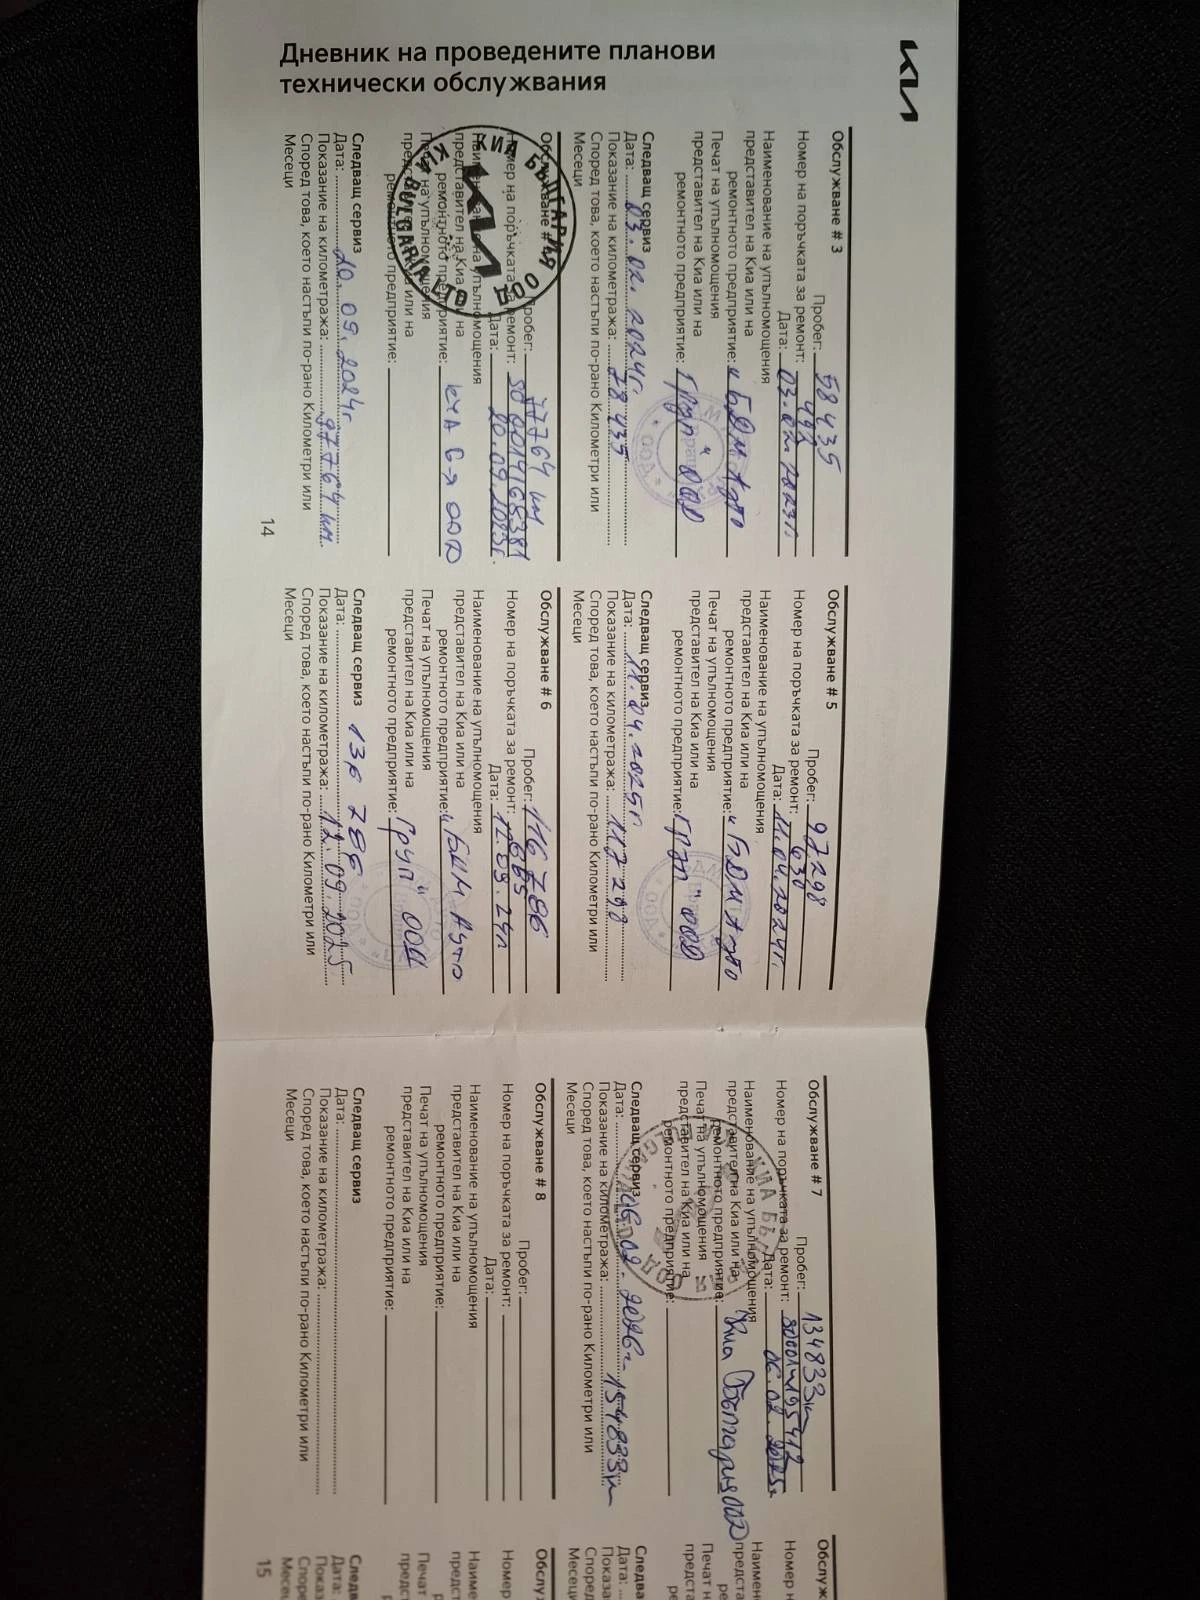 Дневник на проведените планови
технически обслужвания
KIA
Обслужване # 3
Пробег: 58 435
Номер на поръчката за ремонт: 492
Дата: 03.02.2023г
Наименование на упълномощения
представител на Киа или на
ремонтното предприятие: "БДМ Ауто
Печат на упълномощения
представител на Киа или на
ремонтното предприятие: Груп" ООД
Следващ сервиз
Дата: 03.02.2024г.
Показание на километража: 78 435
Според това, което настъпи по-рано Километри или
Месеци
Обслужване # 4
Пробег: 77764 км
Номер на поръчката за ремонт:
Дата: 20.09.2023г.
Наименование на упълномощения
представител на Киа или на
ремонтното предприятие: КИА Б-я ООД
Печат на упълномощения
представител на Киа или на
ремонтното предприятие:
КИА БЪЛГАРИЯ ООД
KIA BULGARIA LTD
Следващ сервиз
Дата: 20.09.2024г
Показание на километража: 97764 км.
Според това, което настъпи по-рано Километри или
Месеци
14
Обслужване # 5
Пробег: 97298
Номер на поръчката за ремонт: 630
Дата: 11.04.2024г.
Наименование на упълномощения
представител на Киа или на
ремонтното предприятие: "БДМ Ауто
Печат на упълномощения
представител на Киа или на
ремонтното предприятие: Груп" ООД
Следващ сервиз
Дата: 11.04.2025г
Показание на километража: 117298
Според това, което настъпи по-рано Километри или
Месеци
Обслужване # 6
Пробег: 116786
Номер на поръчката за ремонт: 665
Дата: 12.09.24г
Наименование на упълномощения
представител на Киа или на
ремонтното предприятие: "БДМ Ауто
Печат на упълномощения
представител на Киа или на
ремонтното предприятие: Груп" ООД
Следващ сервиз 136 786
Дата:
Показание на километража: 12.09.2025
Според това, което настъпи по-рано Километри или
Месеци
Обслужване # 7
Пробег: 134833км
Номер на поръчката за ремонт:
Дата: 06.02.2025г
Наименование на упълномощения
представител на Киа или на
ремонтното предприятие: Киа България ООД
Печат на упълномощения
представител на Киа или на
ремонтното предприятие:
Следващ сервиз
Дата: 06.02.2026г
Показание на километража: 154833км
Според това, което настъпи по-рано Километри или
Месеци
Обслужване # 8
Пробег:
Номер на поръчката за ремонт:
Дата:
Наименование на упълномощения
представител на Киа или на
ремонтното предприятие:
Печат на упълномощения
представител на Киа или на
ремонтното предприятие:
Следващ сервиз
Дата:
Показание на километража:
Според това, което настъпи по-рано Километри или
Месеци
15